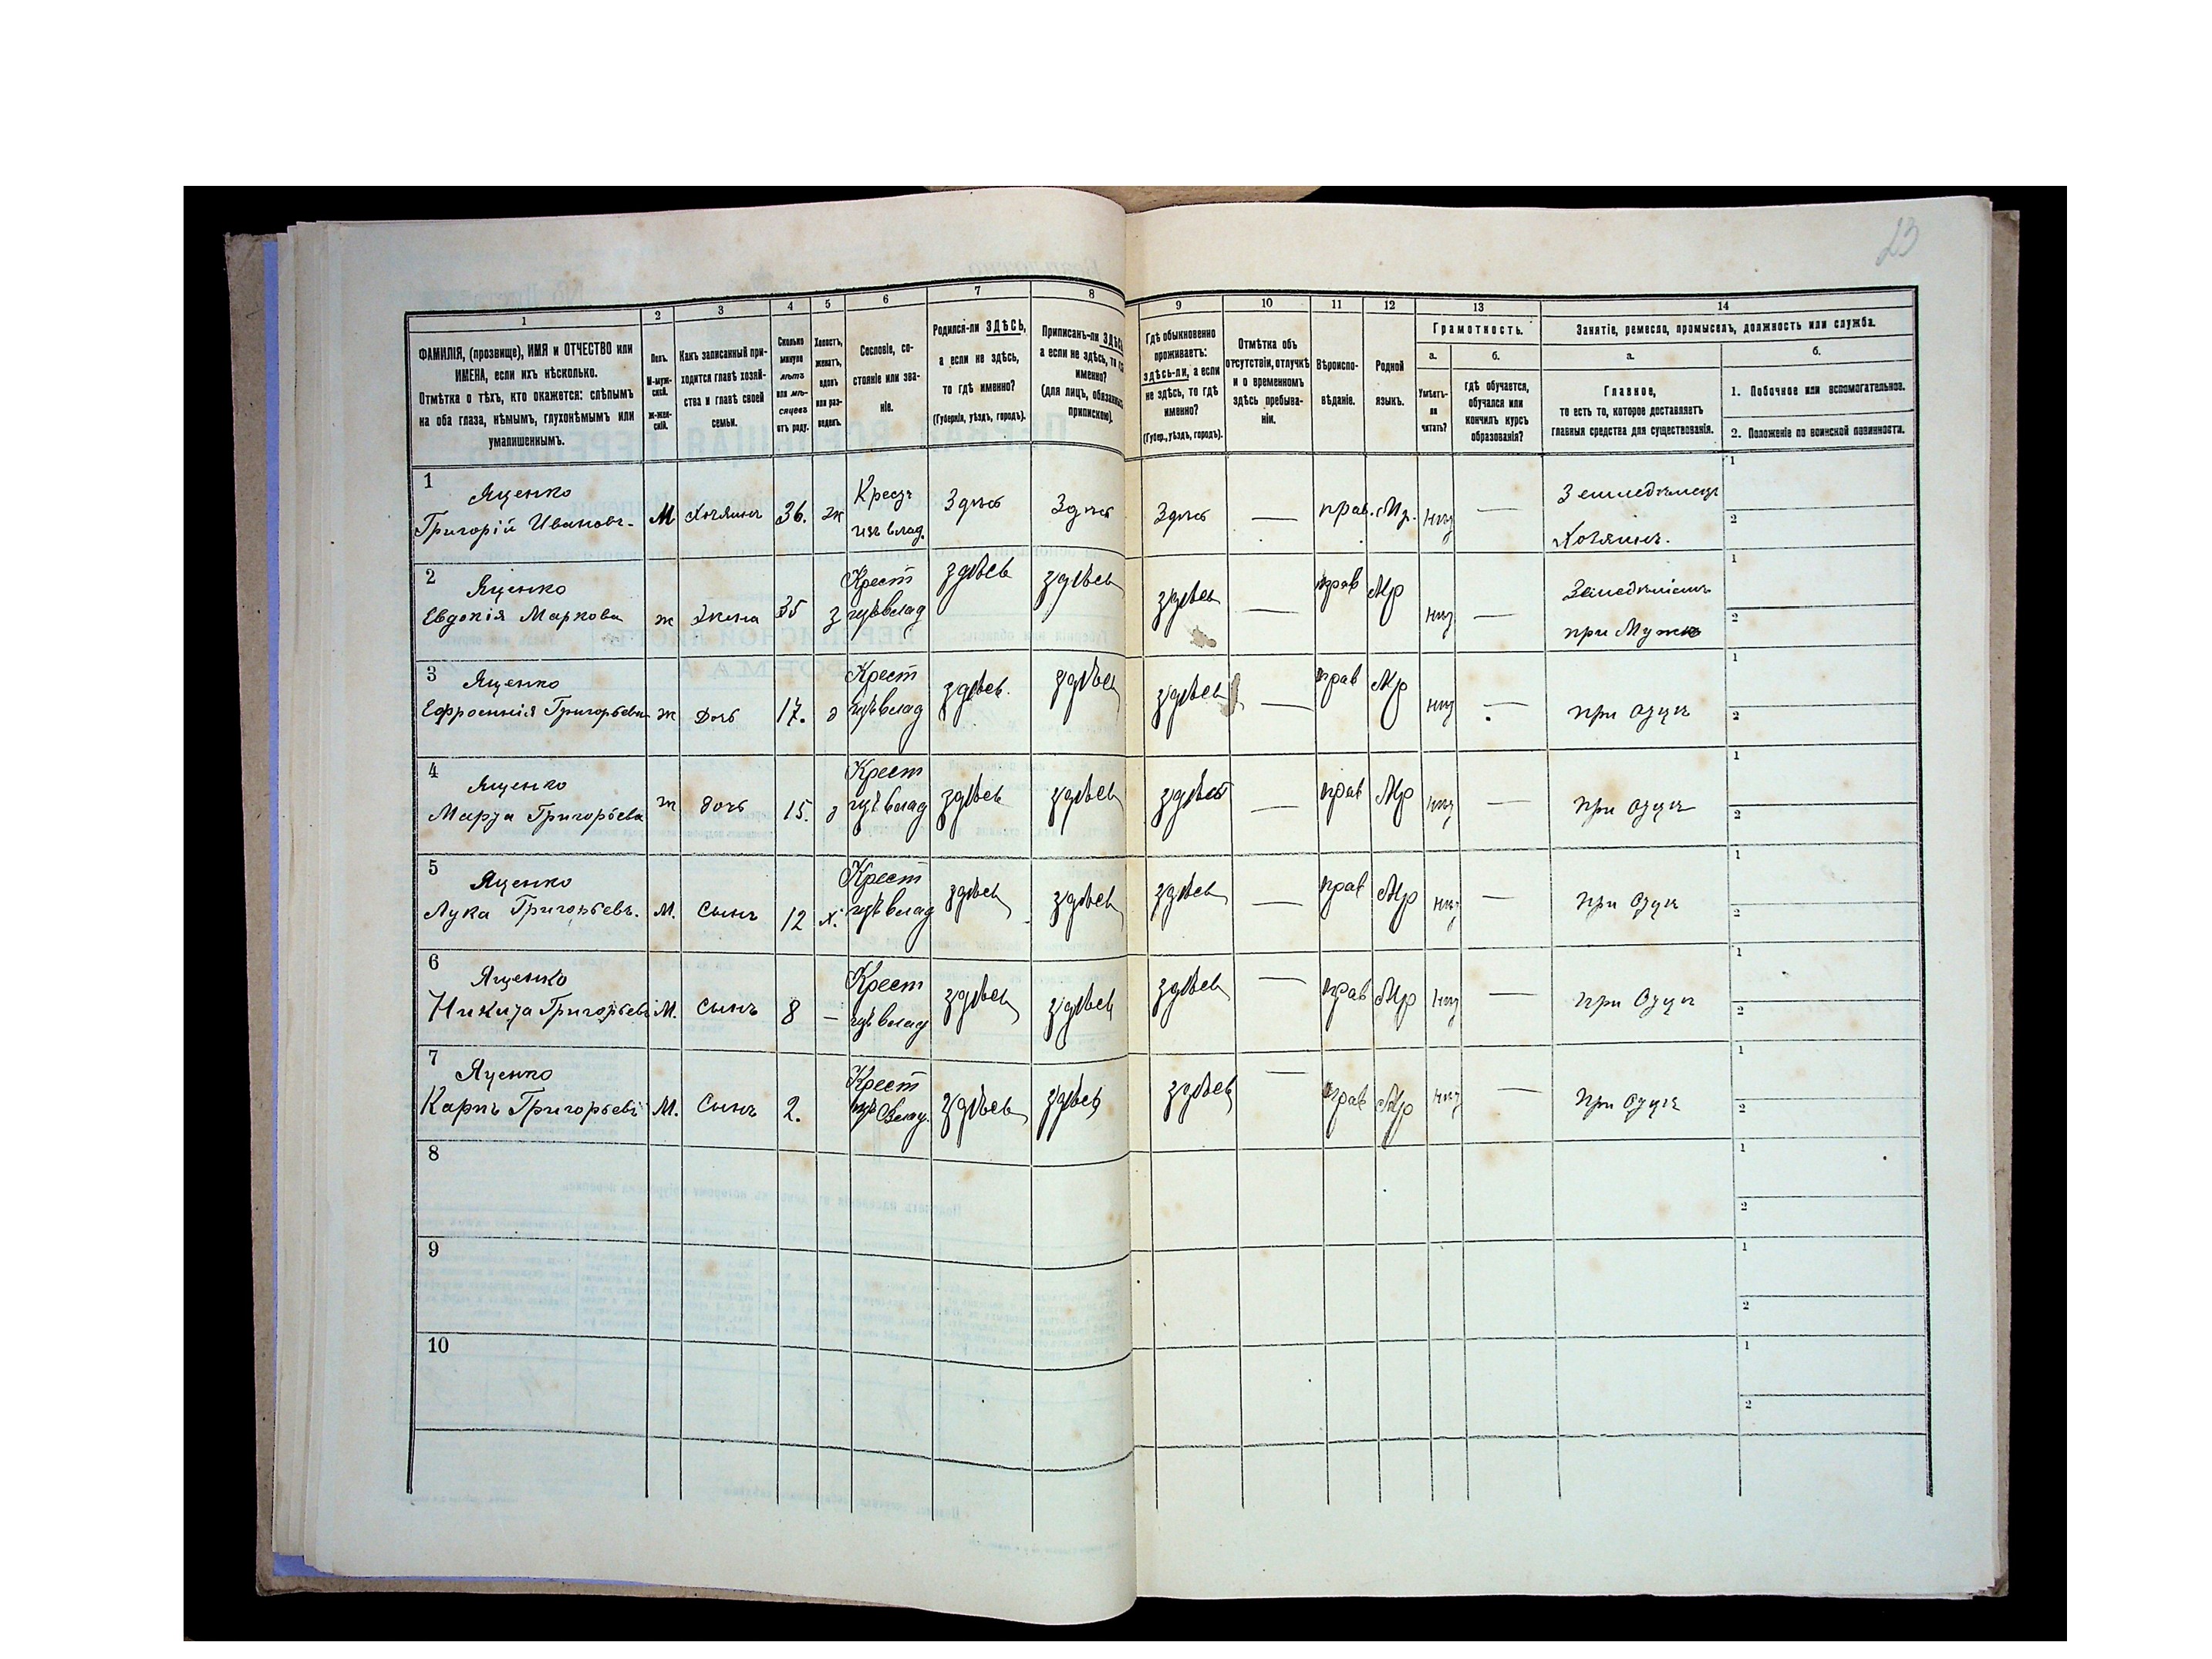 23
1 2 3 4 5 6 7 8 9 10 11 12 13 14
ФАМИЛІЯ, (прозвище), ИМЯ и ОТЧЕСТВО или
ИМЕНА, если ихъ нѣсколько.
Отмѣтка о тѣхъ, кто окажется: слѣпымъ
на оба глаза, нѣмымъ, глухонѣмымъ или
умалишеннымъ.
Полъ.
М-муж-
ской.
Ж-жен-
скій.
Какъ записанный при-
ходится главѣ хозяй-
ства и главѣ своей
семьи.
Сколько
минуло
лѣтъ
или мѣ-
сяцевъ
отъ роду.
Холостъ,
женатъ,
вдовъ
или раз-
веденъ.
Сословіе, со-
стояніе или зва-
ніе.
Родился-ли ЗДѢСЬ,
а если не здѣсь,
то гдѣ именно?
(Губернія, уѣздъ, городъ).
Приписанъ-ли ЗДѢСЬ
а если не здѣсь, то гдѣ
именно?
(для лицъ, обязанныхъ
припискою).
Гдѣ обыкновенно
проживаетъ:
здѣсь-ли, а если
не здѣсь, то гдѣ
именно?
(Губер., уѣздъ, городъ).
Отмѣтка объ
отсутствіи, отлучкѣ
и о временномъ
здѣсь пребыва-
ніи.
Вѣроиспо-
вѣданіе.
Родной
языкъ.
Грамотность.
а.
Умѣетъ-
ли
читать?
б.
гдѣ обучается,
обучался или
кончилъ курсъ
образованія?
Занятіе, ремесло, промыселъ, должность или служба.
а.
Главное,
то есть то, которое доставляетъ
главныя средства для существованія.
б.
1. Побочное или вспомогательное.
2. Положеніе по воинской повинности.
1 Яценко Крест Земледѣлецъ 1
Григорій Ивановъ. М Хозяинъ 36. ж изъ влад. Здѣсь Здѣсь Здѣсь — прав. Мр. нѣт — Хозяинъ. 2
2 Яценко Крест здѣсь здѣсь прав Мр 1
Евдокія Маркова ж Жена 35 з изъ влад здѣсь — нѣт — при Мужѣ 2
3 Яценко Крест здѣсь прав Мр 1
Ефросинія Григорьева ж дочь 17. д изъ влад здѣсь. здѣсь — нѣт — при Отцѣ 2
4 Яценко Крест 1
Марѳа Григорьева ж дочь 15. д изъ влад здѣсь здѣсь здѣсь — прав Мр нѣт — при Отцѣ 2
5 Яценко Крест 1
Лука Григорьевъ. М. Сынъ 12 х. изъ влад здѣсь здѣсь здѣсь — прав Мр нѣт — при Отцѣ 2
6 Яценко Крест 1
Никита Григорьевъ М. Сынъ 8 — изъ влад здѣсь здѣсь здѣсь — прав Мр нѣт — при Отцѣ 2
7 Яценко Крест 1
Карпъ Григорьевъ М. Сынъ 2. изъ Влад. здѣсь здѣсь здѣсь — прав Мр нѣт — при Отцѣ 2
8 1
2
9 1
2
10 1
2